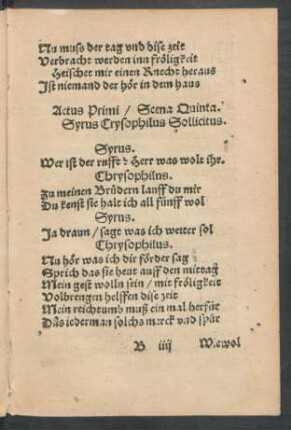 Nu muſs der tag vnd diſe zeit
Verbracht werden inn fröligkeit
Heiſchet mir einen Knecht heraus
Iſt niemand der hör in dem haus
Actus Primi / Scena Quinta.
Syrus Cryſophilus Sollicitus.
Syrus.
Wer iſt der rufft d Herr was wolt ihr.
Chryſophilus.
Zu meinen Brüdern lauff du mir
Du kenſt ſie halt ich all fünff wol
Syrus.
Ja draun / ſagt was ich weiter ſol
Chryſophilus.
Nu hör was ich dir förder ſag
Sprich das ſie heut auff den mittag
Mein geſt wolln ſein / mit fröligkeit
Volbrengen helffen diſe zeit
Mein reichtumb muß ein mal herfür
Das iederman ſolchs merck vnd ſpür
B iiij Wiewol